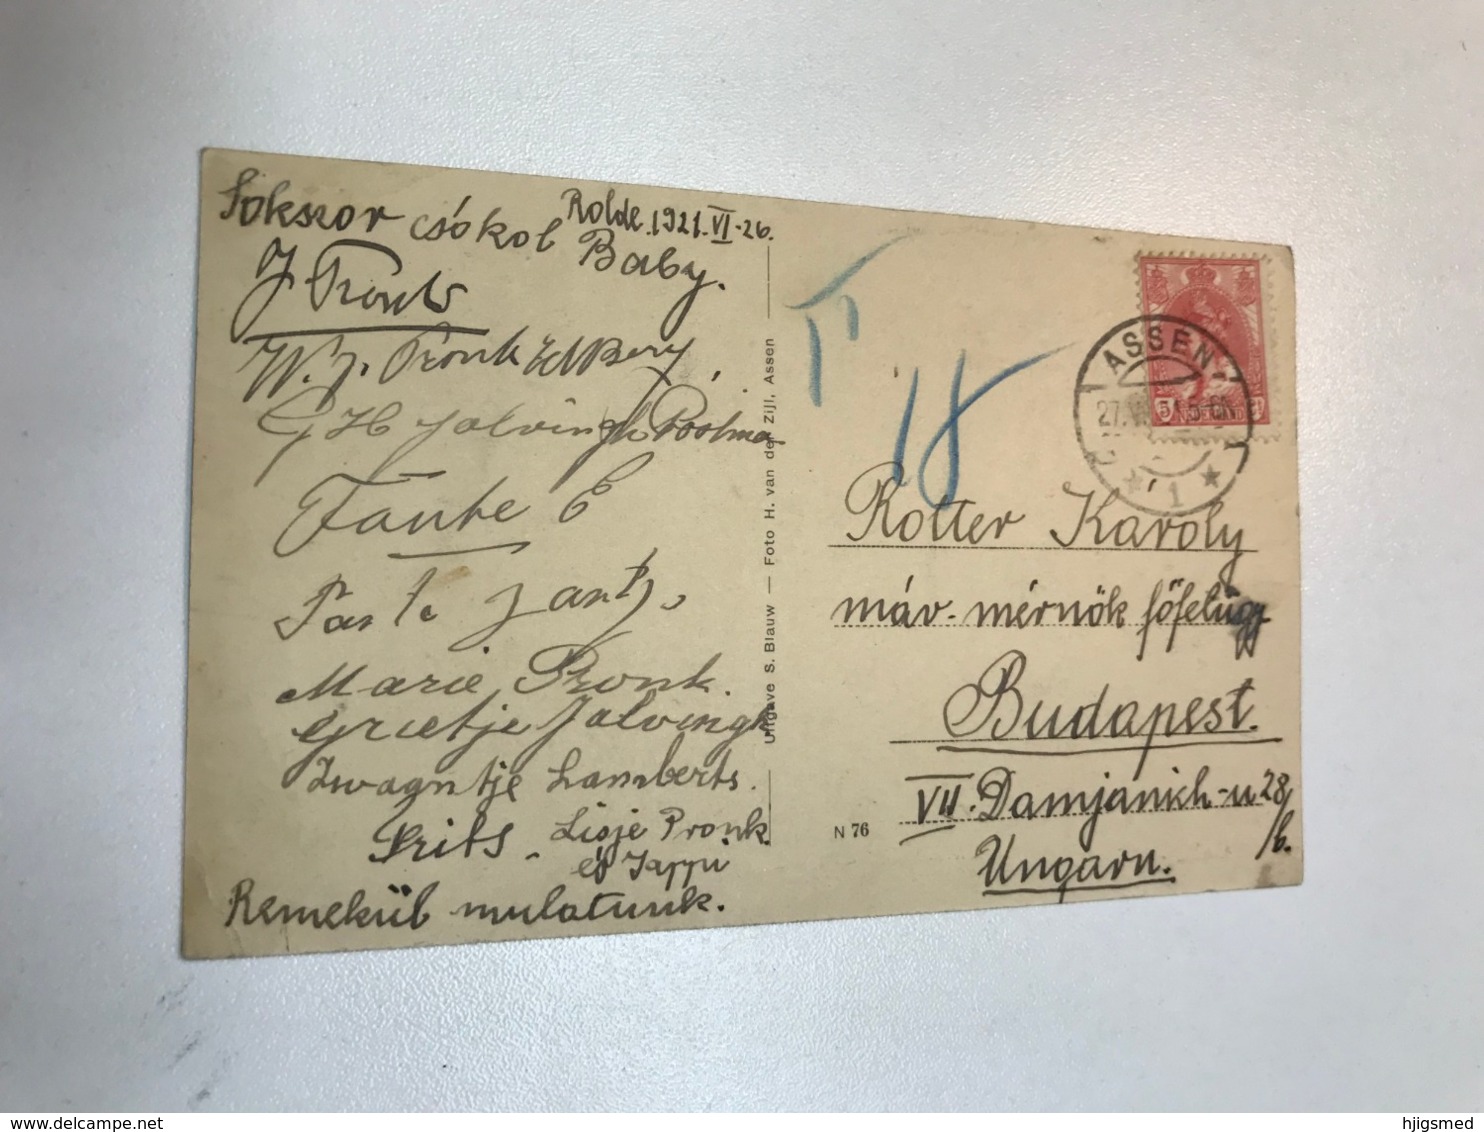 Rolde. 1921. VI-26.
Sokszor csókol Baby.
J Pronk
W. J. Pronk
G H Jalvingh Postma
Tante E
Tante Jantj.
Marie Pronk.
Grietje Jalvingh
Zwagntje Lamberts.
Frits - Lisje Pronk
és Jappi
Remekül mulatunk.
Uitgave S. Blauw — Foto H. van der Zijl, Assen
N 76
T
18
ASSEN
1
Rotter Károly
máv. mérnök főfelügy
Budapest.
VII. Damjanich-u 28/b.
Ungarn.
delcampe.net
hjigsmed